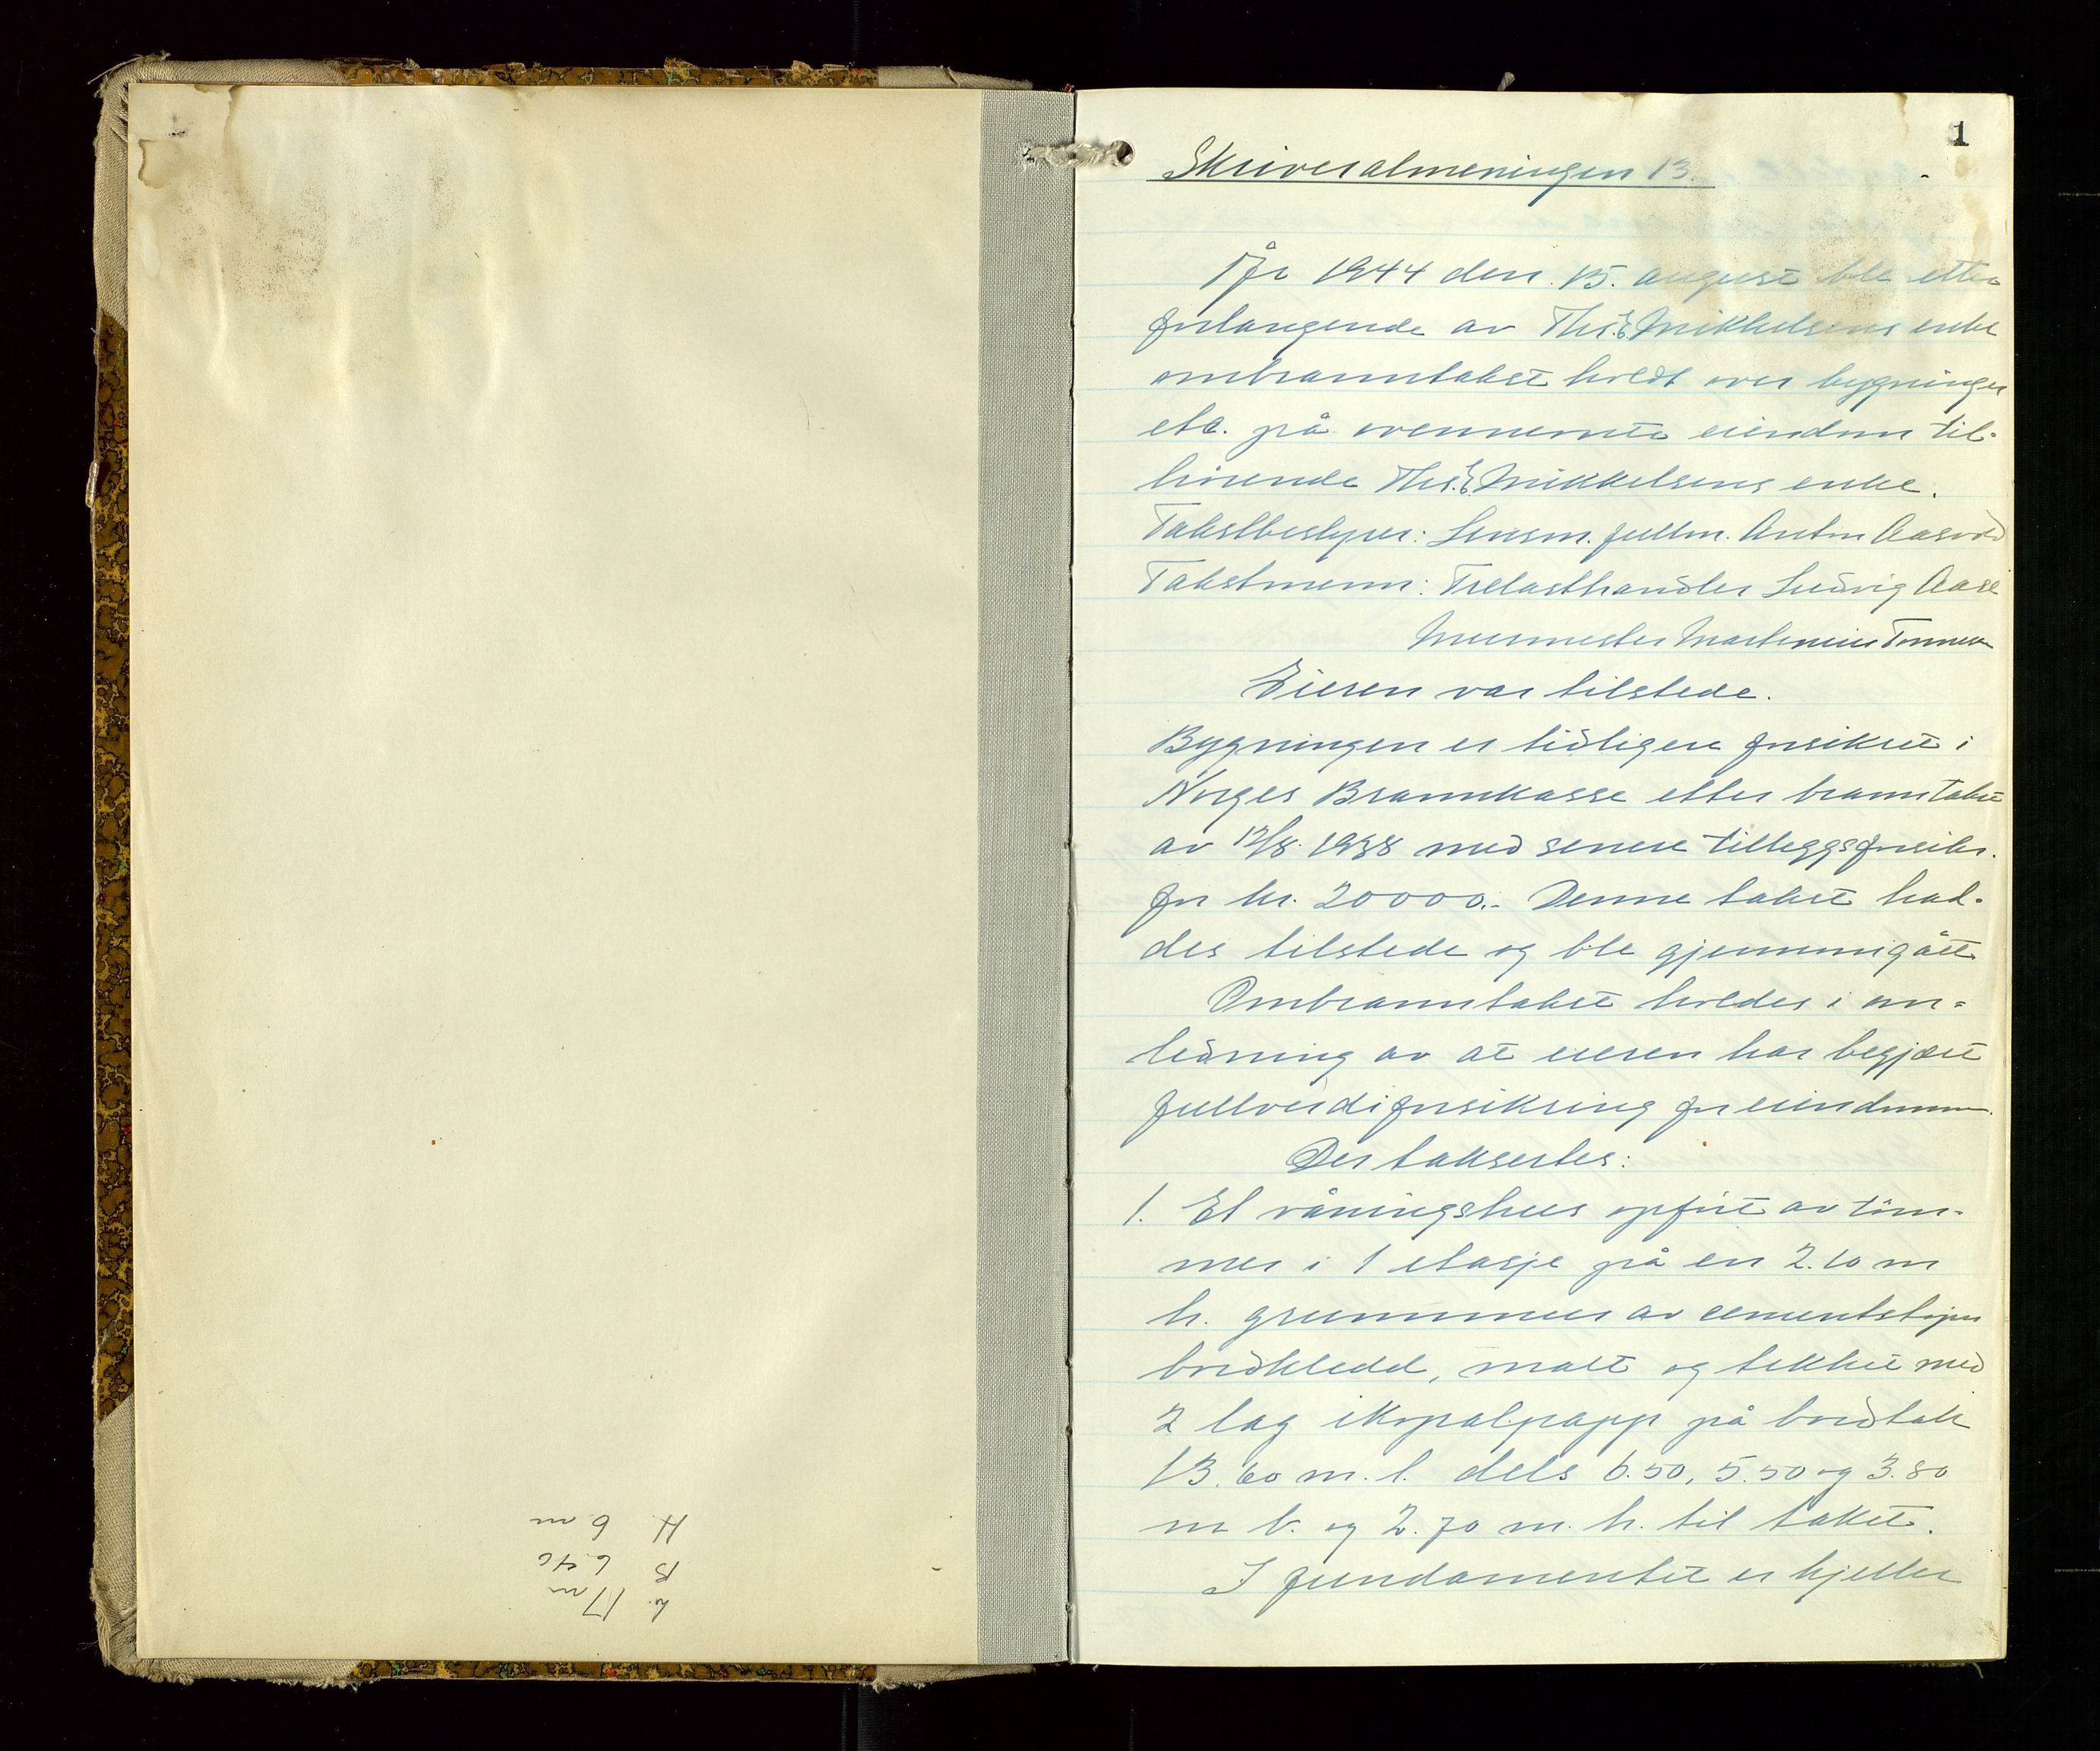 L. 17 m
B 6.40
H 6 m
1
Skriveralmeningen 13.
År 1944 den 15. august ble etter
forlangende av Ths. E. Mikkelsens enke
ombranntakst holdt over bygninger
etc. på ovennevnte eiendom til-
hørende Ths. E. Mikkelsens enke.
Takstbestyrer: Lensm. fullm. Anton Aasvold
Takstmenn: Trelasthandler Ludvig Aase
Murmester Martinius Tonnesen
Eieren var tilstede.
Bygningen er tidligere forsikret i
Norges Brannkasse etter branntakst
av 12/8. 1938 med senere tilleggsforsikr.
for kr. 20000.- Denne takst had-
des tilstede og ble gjennemgått
Ombranntakst holdes i an-
ledning av at eieren har begjært
fullverdiforsikring for eiendommen.
Der taksertes:
1. Et våningshus opført av töm-
mer i 1 etasje på en 2.10 m
h. grunnmur av cementstøpn
bordkledd, malt og tekket med
2 lag ikopalpapp på bordtak
13.60 m. l. dels 6.50, 5.50 og 3.80
m b. og 2.70 m. h. til taket.
I fundamentet er kjeller